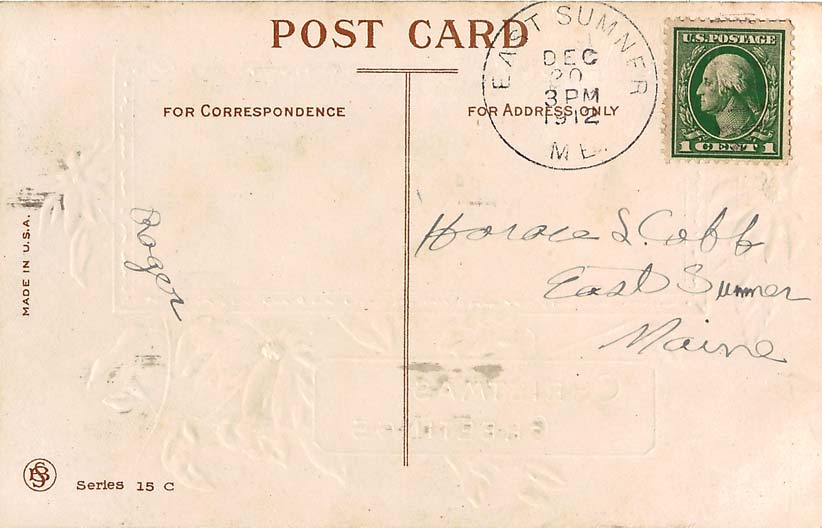 POST CARD
EAST SUMNER
DEC
20
3 PM
1912
ME.
U.S. POSTAGE
1 CENT 1
FOR CORRESPONDENCE
FOR ADDRESS ONLY
MADE IN U.S.A.
Roger
Horace L. Cobb
East Sumner
Maine
CHRISTMAS
GREETINGS
Series 15 C